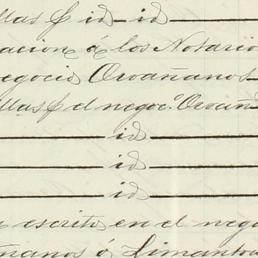 llas p id id
acion á los Notario
negocio Orvañanos
illas p el negoc.º Orvañ
id
id
id
escrito en el nego
ñanos ó Limantou